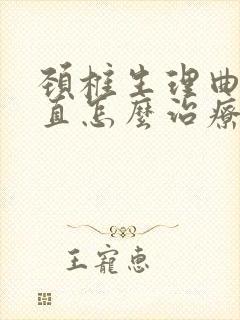 頚椎生理曲
直怎麼治療
王寵惠